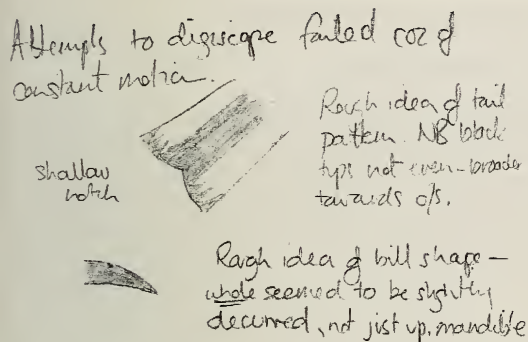 Attempts to digiscope failed coz of
constant motion.
Rough idea of tail
pattern. NB black
tips not even - broader
towards o/s.
shallow
notch
Rough idea of bill shape -
whole seemed to be slightly
decurved, not just up. mandible